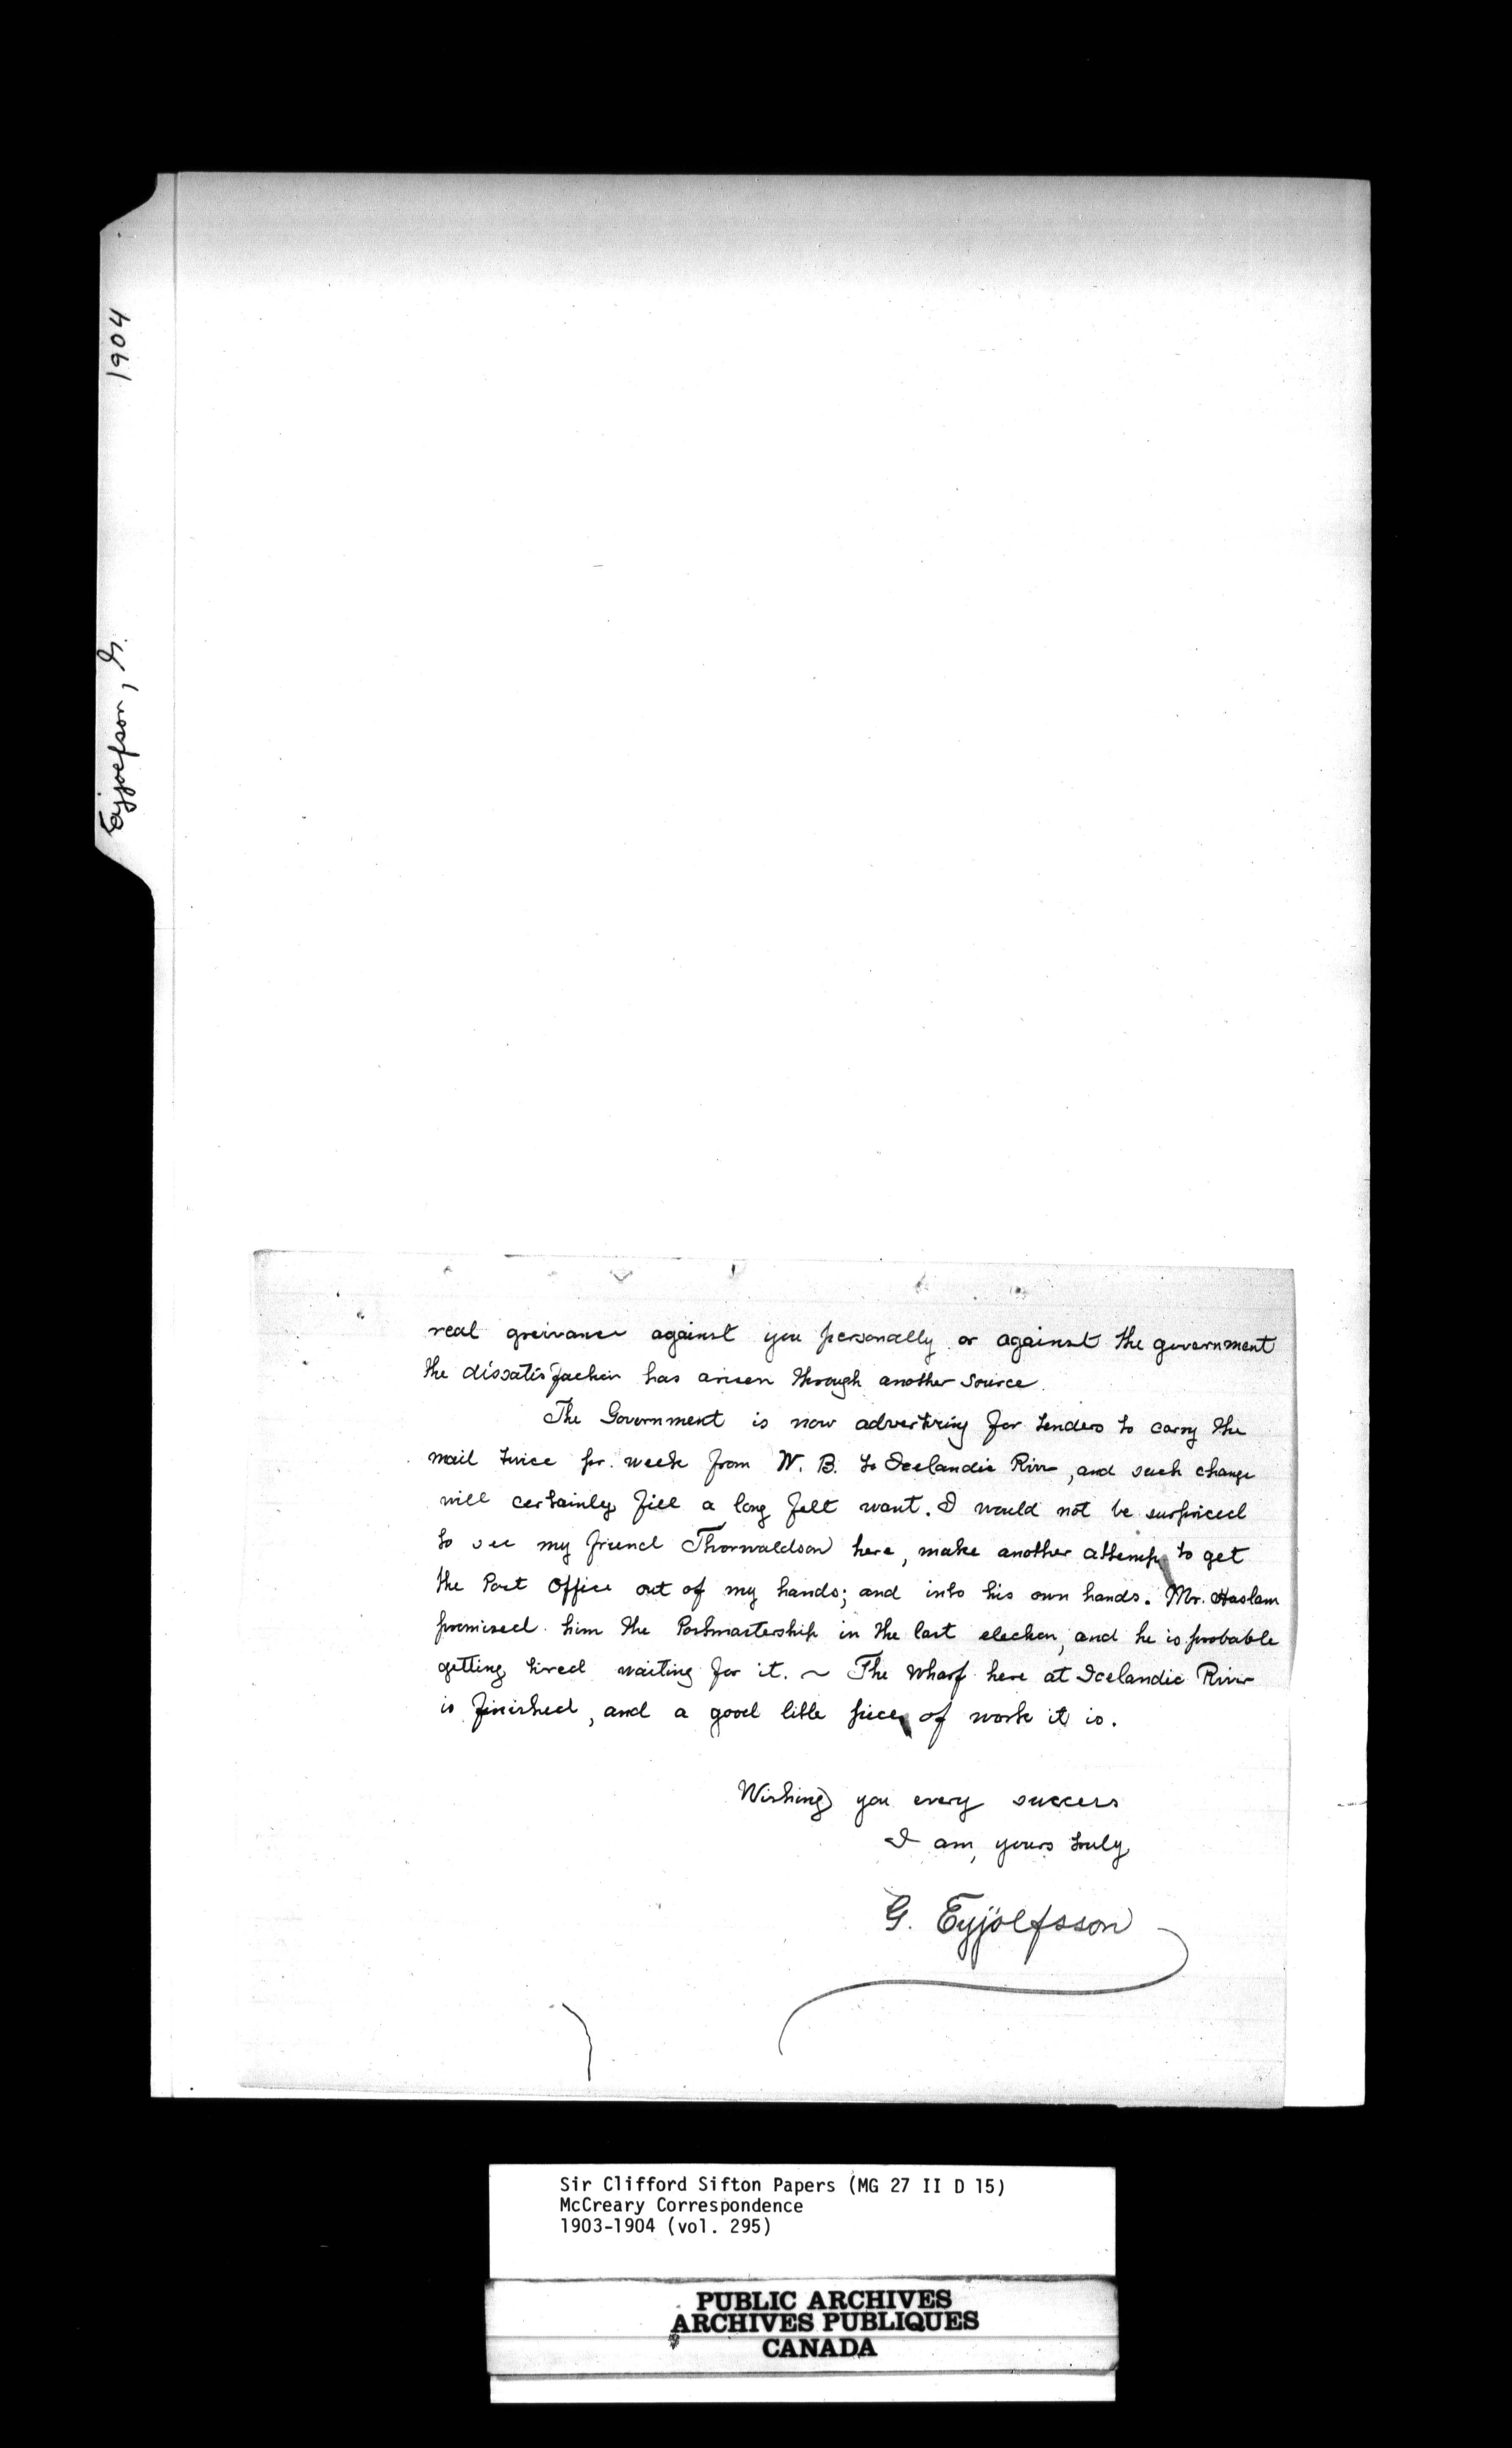 1904
Eyjoefson, G.
real greivance against you personally or against the government
the dissatisfaction has arisen through another source.
The Government is now advertizing for tenders to carry the
mail twice per. week from W. B. to Icelandic River, and such change
will certainly fill a long felt want. I would not be surpriced
to see my friend Thorwaldson here, make another attemp to get
the Post Office out of my hands; and into his own hands. Mr. Haslam
promised him the Postmastership in the last election, and he is probable
getting tired waiting for it. ~ The Wharf here at Icelandic River
is finished, and a good litle piece of work it is.
Wishing you every success
I am, yours truly
G. Eyjólfsson
Sir Clifford Sifton Papers (MG 27 II D 15)
McCreary Correspondence
1903-1904 (vol. 295)
PUBLIC ARCHIVES
ARCHIVES PUBLIQUES
CANADA